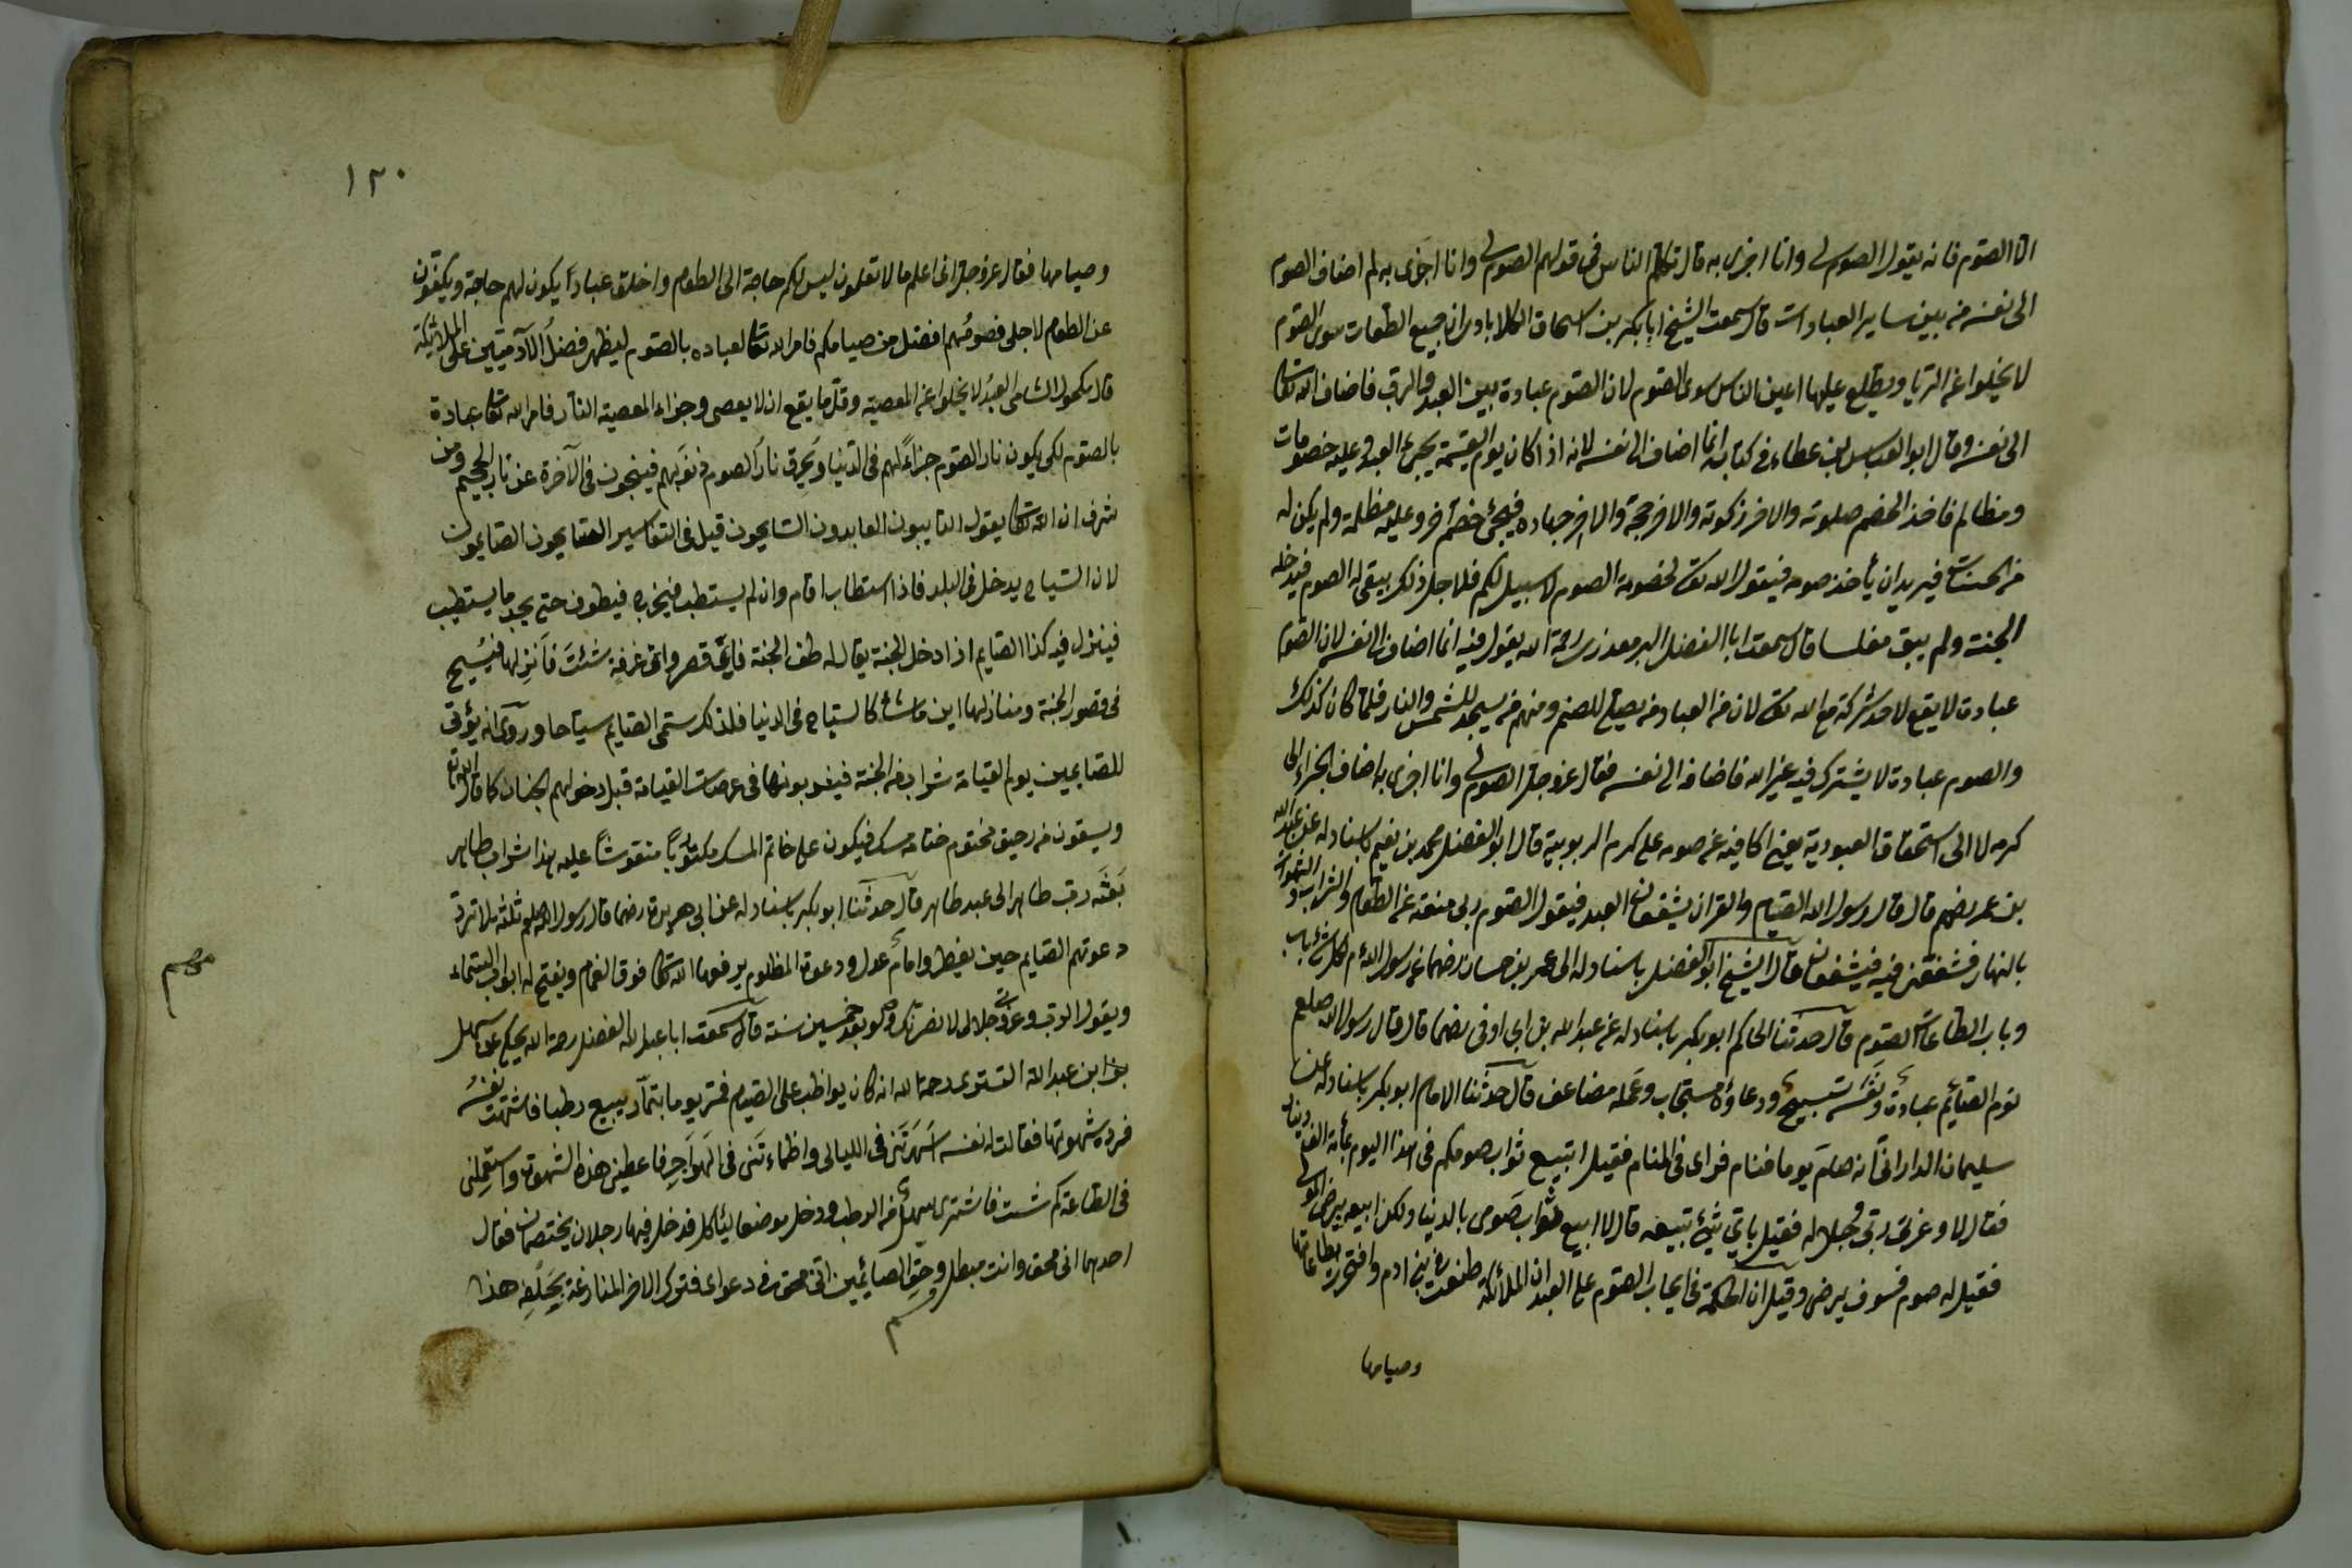 الا الصوم فانه يقول الصوم لي وانا اجزى به قال تكلم الناس في قولهم الصوم لي وانا اجزى به لم اضاف الصوم
الى نفسه من بين ساير العبادات قال سمعت الشيخ ابا بكر بن اسحاق الكلابادى ان جميع الطاعات سوى الصوم
لا يخلوا عن الريا ويطلع عليها اعين الناس سوى الصوم لان الصوم عبادة بين العبد والرب فاضاف الله تعالى
الى نفسه وقال ابو العباس بن عطاء في كتابه انما اضاف الى نفسه لانه اذا كان يوم القيمة يجئ العبد وعليه خصومات
ومظالم فاخذ الخصم صلوته والاخر زكوته والاخر حجه والاخر جهاده فيجئ خصم اخر وعليه مظلمة ولم يكن له
من الحسنات فيريد ان يأخذ صومه فيقول الله تعالى لخصومة الصوم لا سبيل لكم فلاجل ذلك يبقى له الصوم فيدخله
الجنة ولم يبق مفلسا قال سمعت ابا الفضل رحمة الله يقول فيه انما اضاف الى نفسه لان الصوم
عبادة لا يقع لاحد شركة مع الله تعالى لان من العباد من يصلي للصنم ومنهم من يسجد للشمس والنار فلما كان كذلك
والصوم عبادة لا يشترك فيه غير الله فاضافه الى نفسه فقال عز وجل الصوم لي وانا اجزى به اضاف الجزاء الى
كرمه لا الى استحقاق العبودية يعنى اكافيه عن صومه على كرم الربوبية قال ابو الفضل محمد بن نعيم باسناد له عن عبد الله
بن عمر رضهم قال قال رسول الله الصيام والقرآن يشفعان العبد فيقول الصوم ربى منعته عن الطعام والشراب والشهوات
بالنهار فشفعنى فيه فيشفعان قال الشيخ ابو الفضل باسناد له الى رضهما عن رسول الله لكل شئ باب
وباب الطاعات الصوم قال حدثنا الحاكم ابو بكر باسناد له عن عبد الله بن ابى اوفى رضهما قال قال رسول الله صلعم
نوم الصائم عبادة ونفسه تسبيح ودعاؤه مستجاب وعمله مضاعف قال حدثنا الامام ابو بكر باسناد له عن
سليمان الدارانى انه صام يوما فنام فراى في المنام فقيل اتبيع ثواب صومكم في هذا اليوم بمأة الف دينار
فقال لا وعزة ربى وجلاله فقيل باي شئ تبيعه قال لا ابيع ثواب صومى بالدنيا ولكن ابيعه برضى المولى
فقيل له صوم فسوف يرضى وقيل ان الحكمة في ايجاب الصوم على العباد ان الملائكة طعنوا في بنى ادم وافتخرت بطاعاتها
وصيامها
١٣٠
وصيامها فقال عز وجل انى اعلم ما لا تعلمون ليس لكم حاجة الى الطعام واخلق عبادا يكون لهم حاجة ويكفون
عن الطعام لاجلى فصومهم افضل من صيامكم فامر الله تعالى لعباده بالصوم ليظهر فضل الآدميين على الملائكة
قال مكحول الشامى العبد لا يخلوا عن المعصية وقل ما يقع ان لا يعصى وجزاء المعصية النار فامر الله تعالى عباده
بالصوم لكى يكون نار الصوم جزاء لهم في الدنيا ويحرق نار الصوم ذنوبهم فينجون في الآخرة عن نار الجحيم ومن
شرف ان الله تعالى يقول التايبون العابدون السايحون قيل في التفاسير السايحون الصايمون
لان السياح يدخل في البلد فاذا استطاب اقام وان لم يستطب فيخرج فيطوف حتى يجد ما يستطيب
فينزل فيه كذا الصايم اذا دخل الجنة يقال له طف الجنة فاى قصر واى غرفة شئت فانزلها فيسيح
في قصور الجنة ومنازلها اين ما شاء كالسياح في الدنيا فلذلك سمى الصايم سياحا وروى انه يؤتى
للصايمين يوم القيامة شراب من الجنة فيشربونها في عرصات القيامة قبل دخولهم الجنان كما قال الله تعالى
ويسقون من رحيق مختوم ختامه مسك فيكون على خاتم المسك مكتوبا منقوشا عليه هذا شراب طاهر
بعثه رب طاهر الى عبد طاهر قال حدثنا ابو بكر باسناد له عن ابى هريرة رضهما قال رسول الله صلعم ثلثة لا ترد
دعوتهم الصايم حين يفطر وامام عدل ودعوة المظلوم يرفعها الله تعالى فوق الغمام ويفتح له ابواب السماء
ويقول الرب وعزتى وجلالى لانصرنك ولو بعد خمسين سنة قال سمعت ابا عبد الله الفضل رحمة الله يحكى عن سهل
بن ابن عبد الله التسترى رحمة الله انه كان يواظب على الصيام فمر يوما بتمار يبيع رطبا فاشتهت نفسه
فرده شهوتها فقالت له نفسه اسهرتنى في الليالى واظماءتنى في الهواجر فاعطينى هذه الشهوة واستعملنى
في الطاعة كم شئت فاشترى من الرطب ودخل موضعا ليأكل فدخل فيها رجلان يختصمان فقال
احدهما انى محق وانت مبطل وحق الصائمين انى محق في دعواى فترك الاخر المنازعة بحلفه هذا